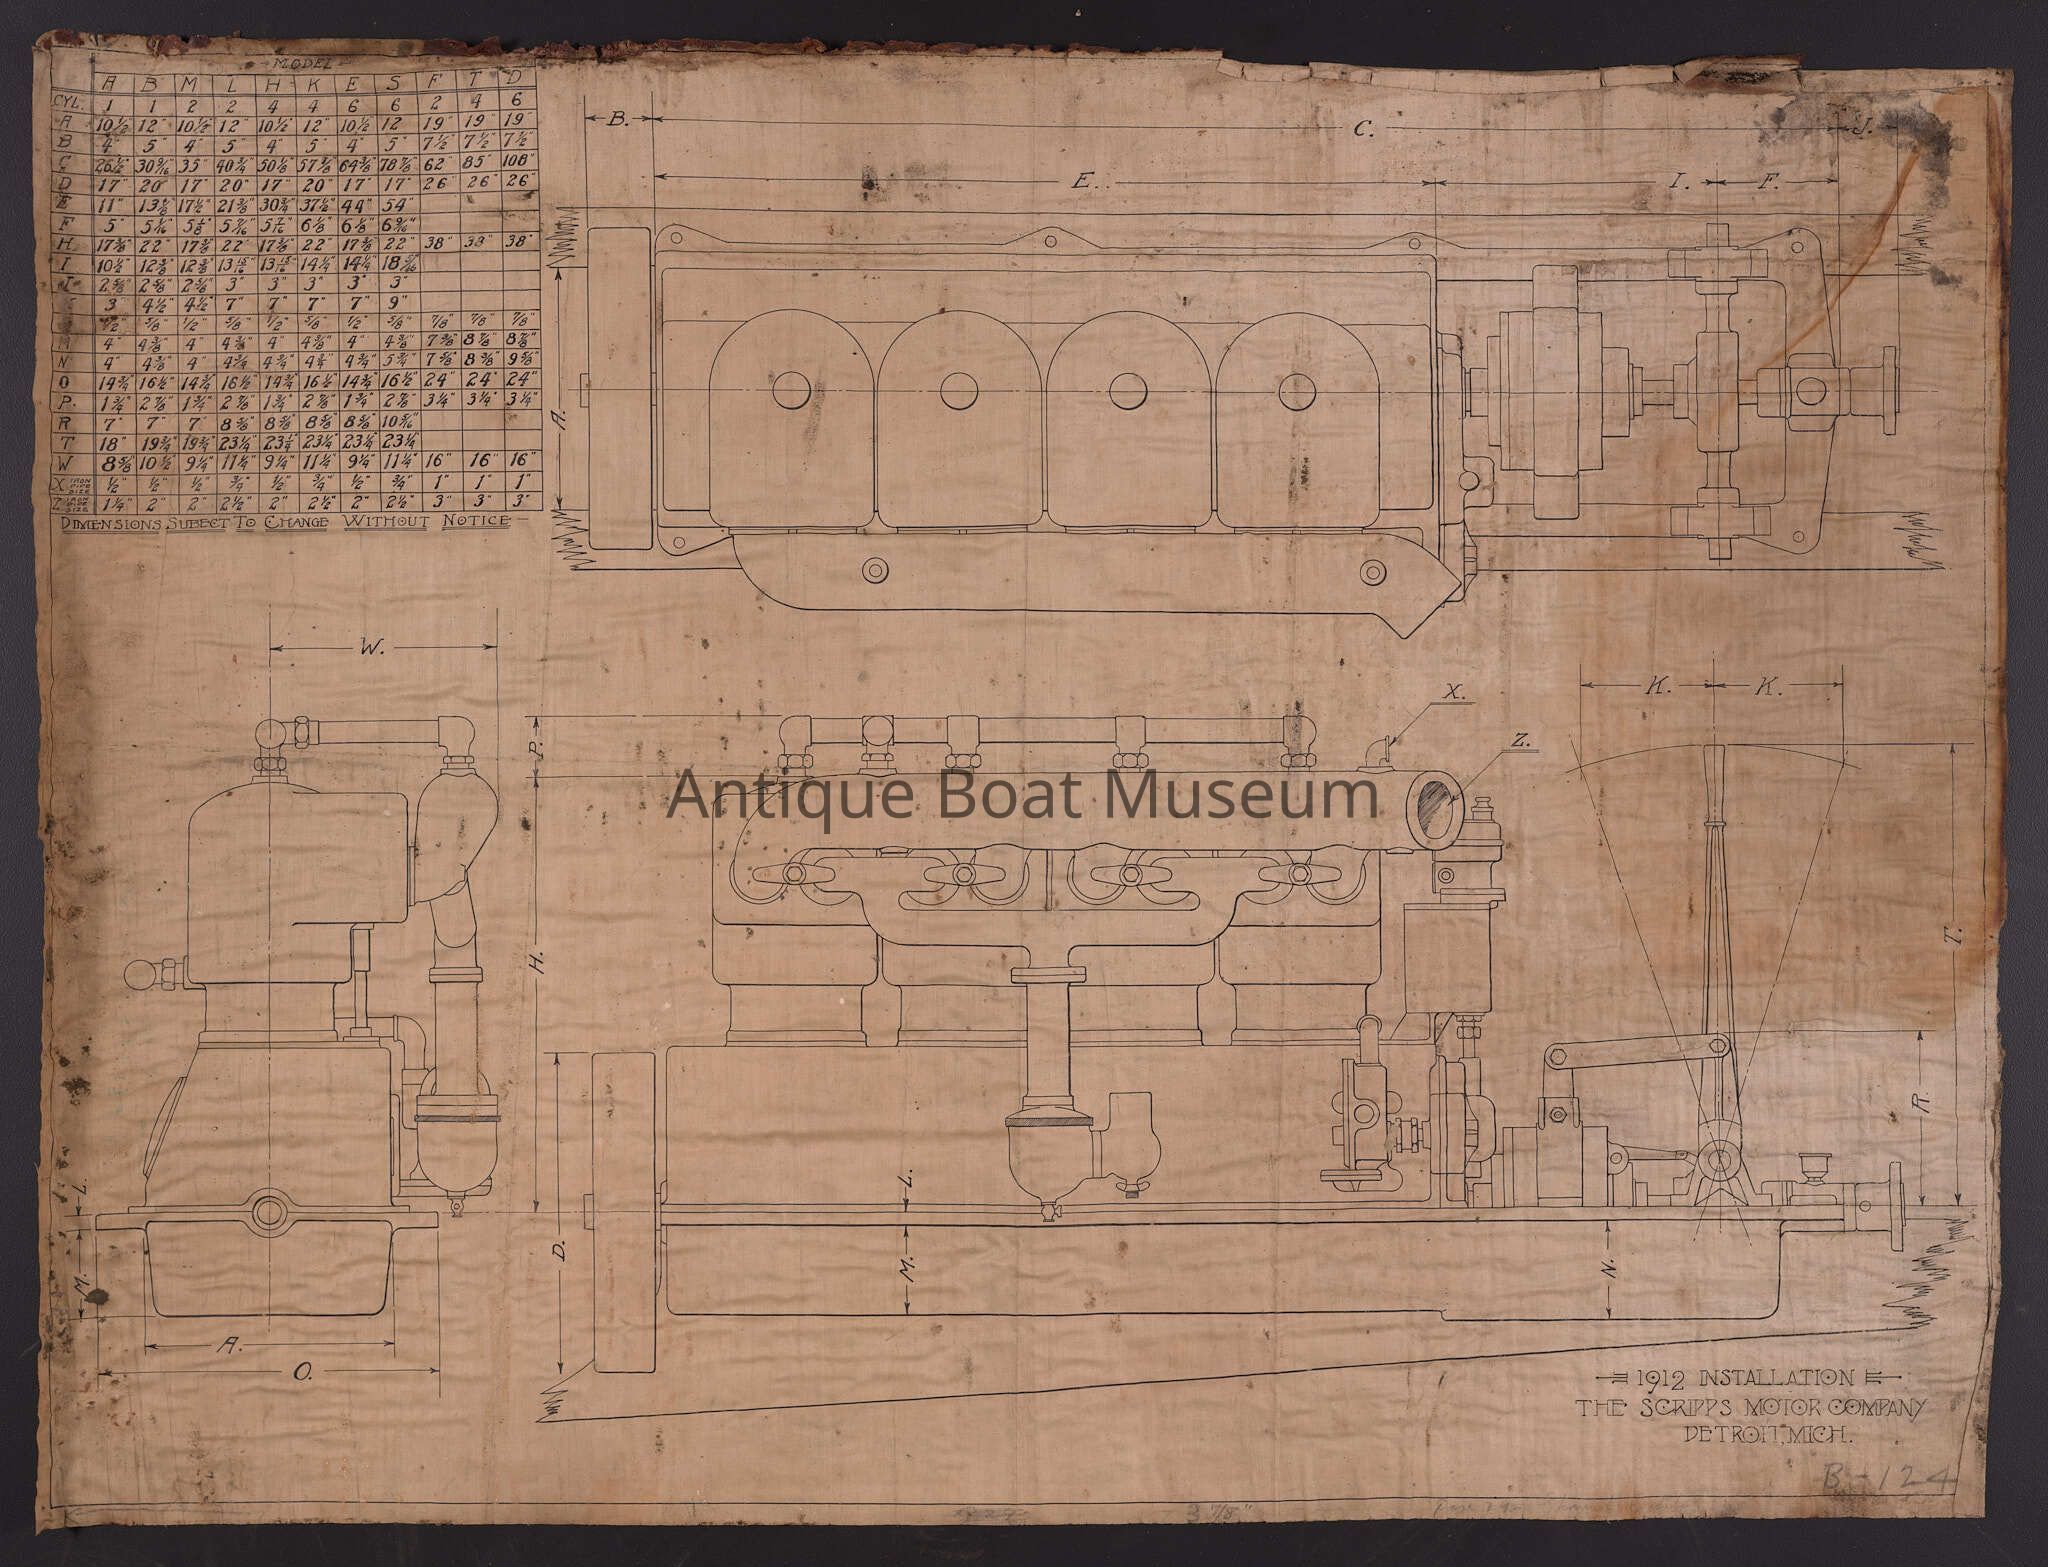 MODEL
A B M L H K E S F T D
CYL. 1 1 2 2 4 4 6 6 2 4 6
A 10½ 12" 10½" 12" 10½" 12" 10½ 12 19" 19" 19"
B 4" 5" 4" 5" 4" 5" 4" 5" 7½" 7½" 7½"
C 26½" 30 9/16 35" 40¾" 50⅛" 57⅜" 64⅜" 78⅞" 62" 85" 108"
D 17" 20" 17" 20" 17" 20" 17" 17" 26" 26" 26"
E 11" 13⅛ 17½" 21⅜" 30¾" 37½" 44" 54"
F 5"
H 17⅜" 22" 17⅜" 22" 17⅜" 22" 17⅜" 22" 38" 38" 38"
I 10½" 12⅜" 12⅜" 13 15/16 13 15/16 14¼" 14¼"
2⅝" 2⅝" 2⅝" 3" 3" 3" 3" 3"
3" 4½" 4½" 7" 7" 7" 7" 9"
½" ⅝" ½" ⅝" ½" ⅝" ½" ⅝" ⅞" ⅞" ⅞"
M 4" 4⅜" 4" 4⅜" 4" 4⅜" 4" 4⅜" 7⅜" 8⅞" 8⅞"
N 4" 4⅜" 4" 4¾" 4¾" 4¾" 4¾" 5¾" 8⅜" 9⅝"
O 14¾" 16½" 14¾" 16½" 14¾" 16½" 14¾" 16½" 24" 24" 24"
P. 1¾" 2⅞" 1¾" 2⅞" 1¾" 2⅞" 1¾" 2⅞" 3¼" 3¼" 3¼"
R 7" 7" 7" 8⅝" 8⅝" 8⅝" 8⅝" 10 5/16"
T 18" 19¾" 19¾" 23¼" 23¼" 23¼" 23¼" 23¼"
W 8⅝ 10½" 9¼" 11¼" 9¼" 11¼" 9¼" 11¼" 16" 16" 16"
X IRON PIPE SIZE ½" ½" ½" ¾" ½" ¾" ½" ¾" 1" 1" 1"
Z IRON PIPE SIZE 1¼" 2" 2" 2½" 2" 2½" 2" 2½" 3" 3" 3"
DIMENSIONS SUBECT TO CHANGE WITHOUT NOTICE
B. C. J.
E. I. F.
A.
W.
K. K.
X.
Z.
P.
H.
T.
R.
L. L.
D.
M. M. N.
A.
O.
Antique Boat Museum
1912 INSTALLATION
THE SCRIPPS MOTOR COMPANY
DETROIT, MICH.
B-124
3 7/8"